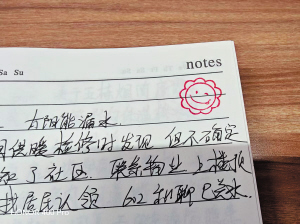 Sa Su
notes
太阳能漏水.
供暖检修时发现 但不确定
知了社区. 联系物业上楼顶
找居民认领 602 已关水.